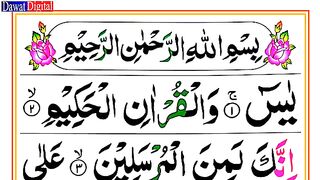 Dawat Digital
بِسْمِ اللهِ الرَّحْمٰنِ الرَّحِيْمِ
يٰسٓ ۚ ﴿۱﴾ وَالْقُرْاٰنِ الْحَكِيْمِ ۙ ﴿۲﴾
اِنَّكَ لَمِنَ الْمُرْسَلِيْنَ ۙ ﴿۳﴾ عَلٰى